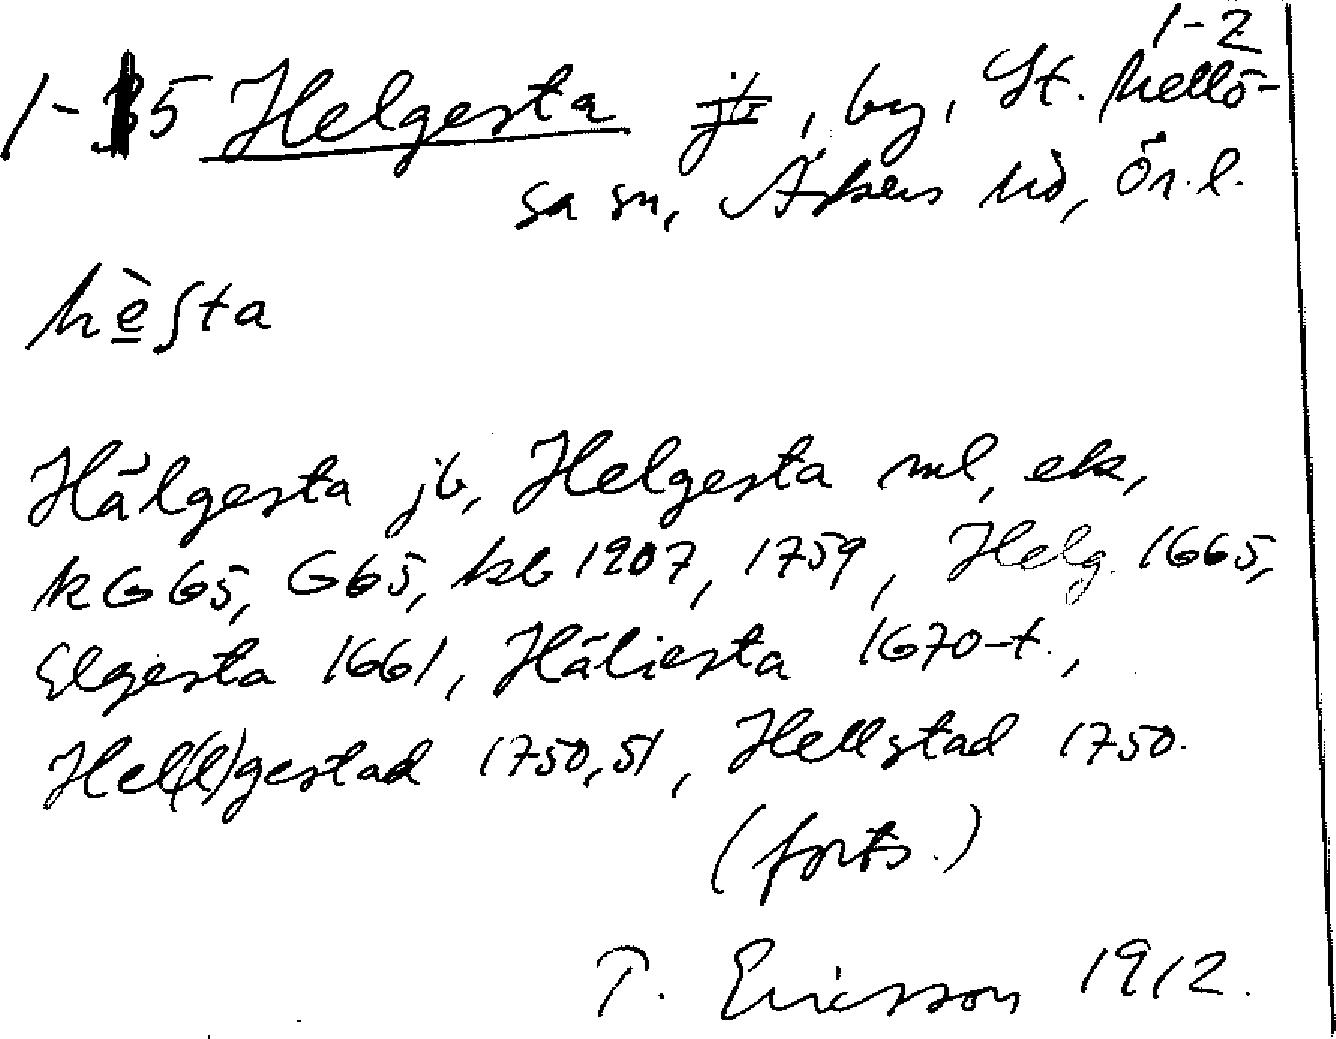 1-2
1-5 Helgesta jb, by, St. Mellö-
sa sn, Askers hd, Ör. l.
hèʃta
Hälgesta jb, Helgesta ml, ek,
kG65, G65, kb 1907, 1759, Helg. 1665,
Elgesta 1661, Häliesta 1670-t.,
Hel(l)gestad 1750,51, Hellstad 1750.
(forts.)
T. Ericsson 1912.